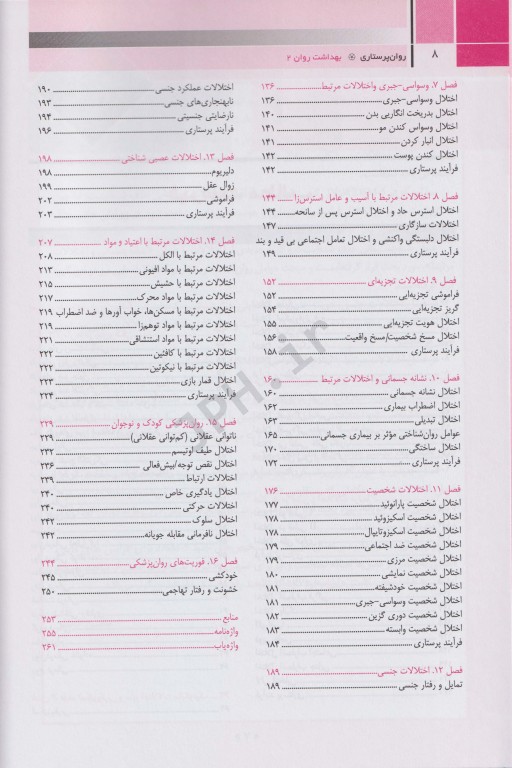 ۸ روان‌پرستاری ◉ بهداشت روان ۲
فصل ۷. وسواسی-جبری واختلالات مرتبط ۱۳۶
اختلال وسواسی-جبری ۱۳۶
اختلال بدریخت انگاریی بدن ۱۴۰
اختلال وسواس کندن مو ۱۴۱
اختلال انبار کردن ۱۴۱
اختلال کندن پوست ۱۴۲
فرآیند پرستاری ۱۴۲
فصل ۸. اختلالات مرتبط با آسیب و عامل استرس‌زا ۱۴۴
اختلال استرس حاد و اختلال استرس پس از سانحه ۱۴۴
اختلالات سازگاری ۱۴۷
اختلال دلبستگی واکنشی و اختلال تعامل اجتماعی بی قید و بند
فرآیند پرستاری ۱۴۹
فصل ۹. اختلالات تجزیه‌ای ۱۵۲
فراموشی تجزیه‌ایی ۱۵۲
گریز تجزیه‌ایی ۱۵۴
اختلال هویت تجزیه‌ایی ۱۵۵
اختلال مسخ شخصیت/مسخ واقعیت ۱۵۶
فرآیند پرستاری ۱۵۸
فصل ۱۰. نشانه جسمانی و اختلالات مرتبط ۱۶۰
اختلال نشانه جسمانی ۱۶۰
اختلال اضطراب بیماری ۱۶۲
اختلال تبدیلی ۱۶۳
عوامل روان‌شناختی مؤثر بر بیماری جسمانی ۱۶۵
اختلال ساختگی ۱۷۰
فرآیند پرستاری ۱۷۲
فصل ۱۱. اختلالات شخصیت ۱۷۶
اختلال شخصیت پارانوئید ۱۷۷
اختلال شخصیت اسکیزوئید ۱۷۸
اختلال شخصیت اسکیزوتایپال ۱۷۸
اختلال شخصیت ضد اجتماعی ۱۷۹
اختلال شخصیت مرزی ۱۷۹
اختلال شخصیت نمایشی ۱۸۰
اختلال شخصیت خودشیفته ۱۸۱
اختلال شخصیت وسواسی-جبری ۱۸۱
اختلال شخصیت دوری گزین ۱۸۲
اختلال شخصیت وابسته ۱۸۳
فرآیند پرستاری ۱۸۴
فصل ۱۲. اختلالات جنسی ۱۸۹
تمایل و رفتار جنسی ۱۸۹
اختلالات عملکرد جنسی ۱۹۰
نابهنجاری‌های جنسی ۱۹۳
نارضایتی جنسیتی ۱۹۴
فرآیند پرستاری ۱۹۶
فصل ۱۳. اختلالات عصبی شناختی ۱۹۸
دلیریوم ۱۹۸
زوال عقل ۱۹۹
فراموشی ۲۰۲
فرآیند پرستاری ۲۰۳
فصل ۱۴. اختلالات مرتبط با اعتیاد و مواد ۲۰۷
اختلالات مرتبط با الکل ۲۰۸
اختلالات مرتبط با مواد افیونی ۲۱۳
اختلالات مرتبط با حشیش ۲۱۵
اختلالات مرتبط با مواد محرک ۲۱۷
اختلالات مرتبط با مسکن‌ها، خواب آورها و ضد اضطراب ۲۱۹
اختلالات مرتبط با مواد توهم‌زا ۲۱۹
اختلالات مرتبط با مواد استنشاقی ۲۲۱
اختلالات مرتبط با کافئین ۲۲۲
اختلالات مرتبط با نیکوتین ۲۲۲
اختلال قمار بازی ۲۲۳
فرآیند پرستاری ۲۲۴
فصل ۱۵. روان‌پزشکی کودک و نوجوان ۲۲۹
ناتوانی عقلانی (کم‌توانی عقلانی) ۲۲۹
اختلال طیف اوتیسم ۲۳۲
اختلال نقص توجه/بیش‌فعالی ۲۳۶
اختلالات ارتباط ۲۳۹
اختلال یادگیری خاص ۲۴۰
اختلالات حرکتی ۲۴۰
اختلال سلوک ۲۴۲
اختلال نافرمانی مقابله جویانه ۲۴۲
فصل ۱۶. فوریت‌های روان‌پزشکی ۲۴۴
خودکشی ۲۴۵
خشونت و رفتار تهاجمی ۲۵۰
منابع ۲۵۳
واژه‌نامه ۲۵۵
واژه‌یاب ۲۶۱
JPH.ir